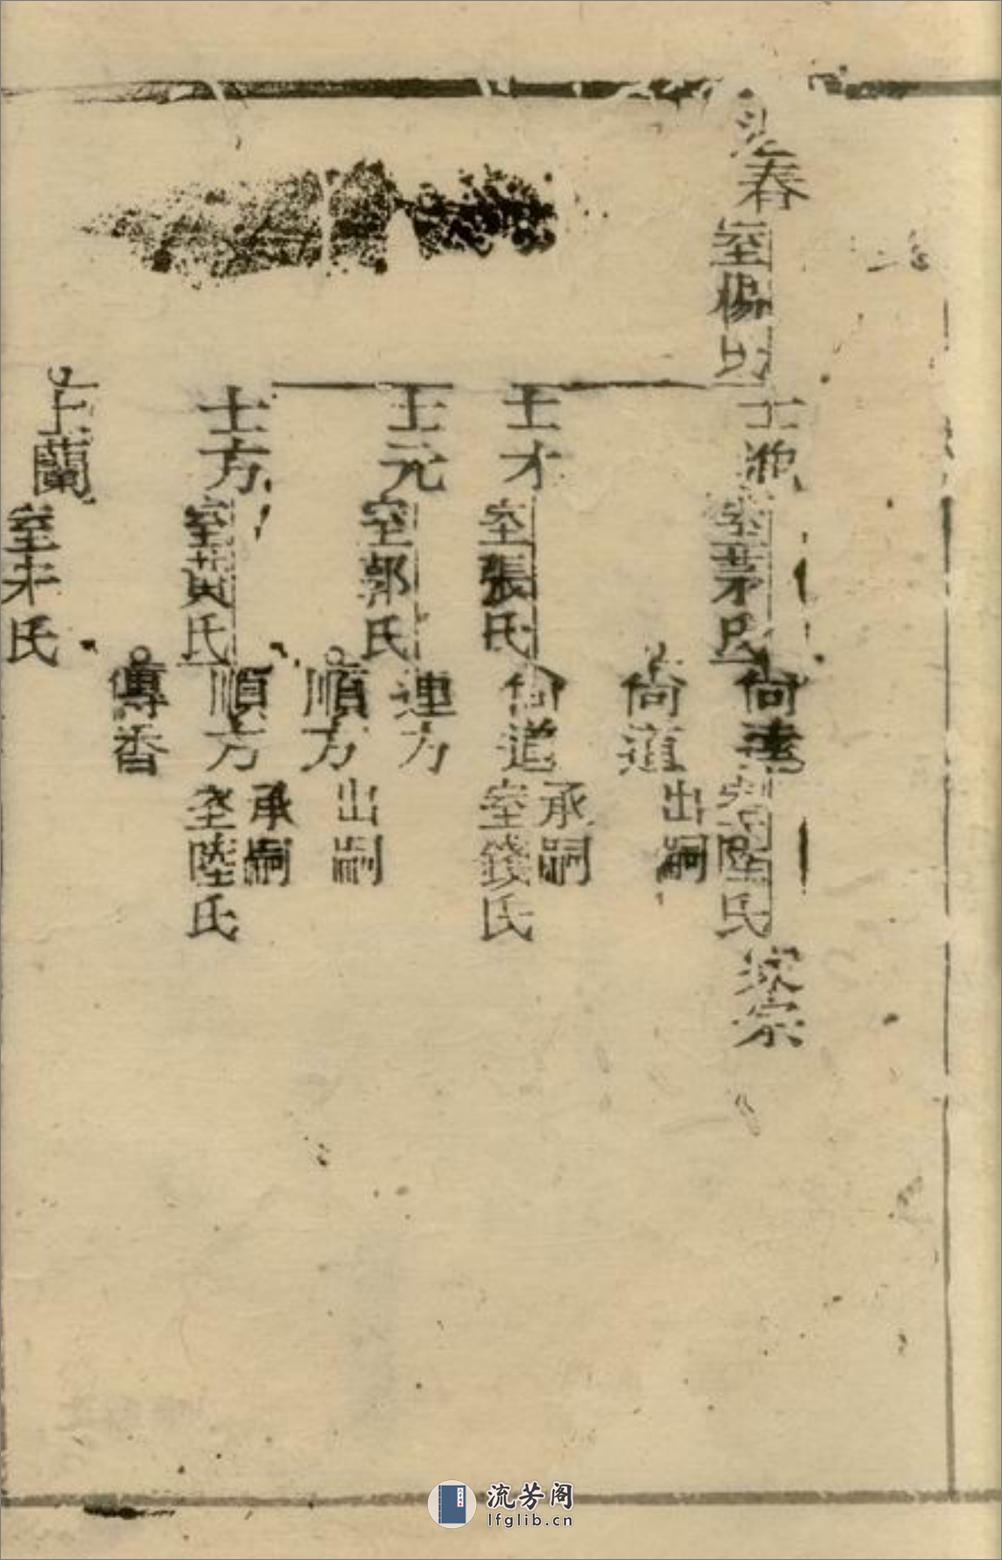 春
室楊氏
士
室茅氏
尙達
室陸氏
家宗
尙道
出嗣
士才
室張氏
尙道
承嗣
室錢氏
士元
室郭氏
連方
順方
出嗣
士方
室黃氏
順方
承嗣
室陸氏
傳香
士蘭
室朱氏
流芳阁
lfglib.cn